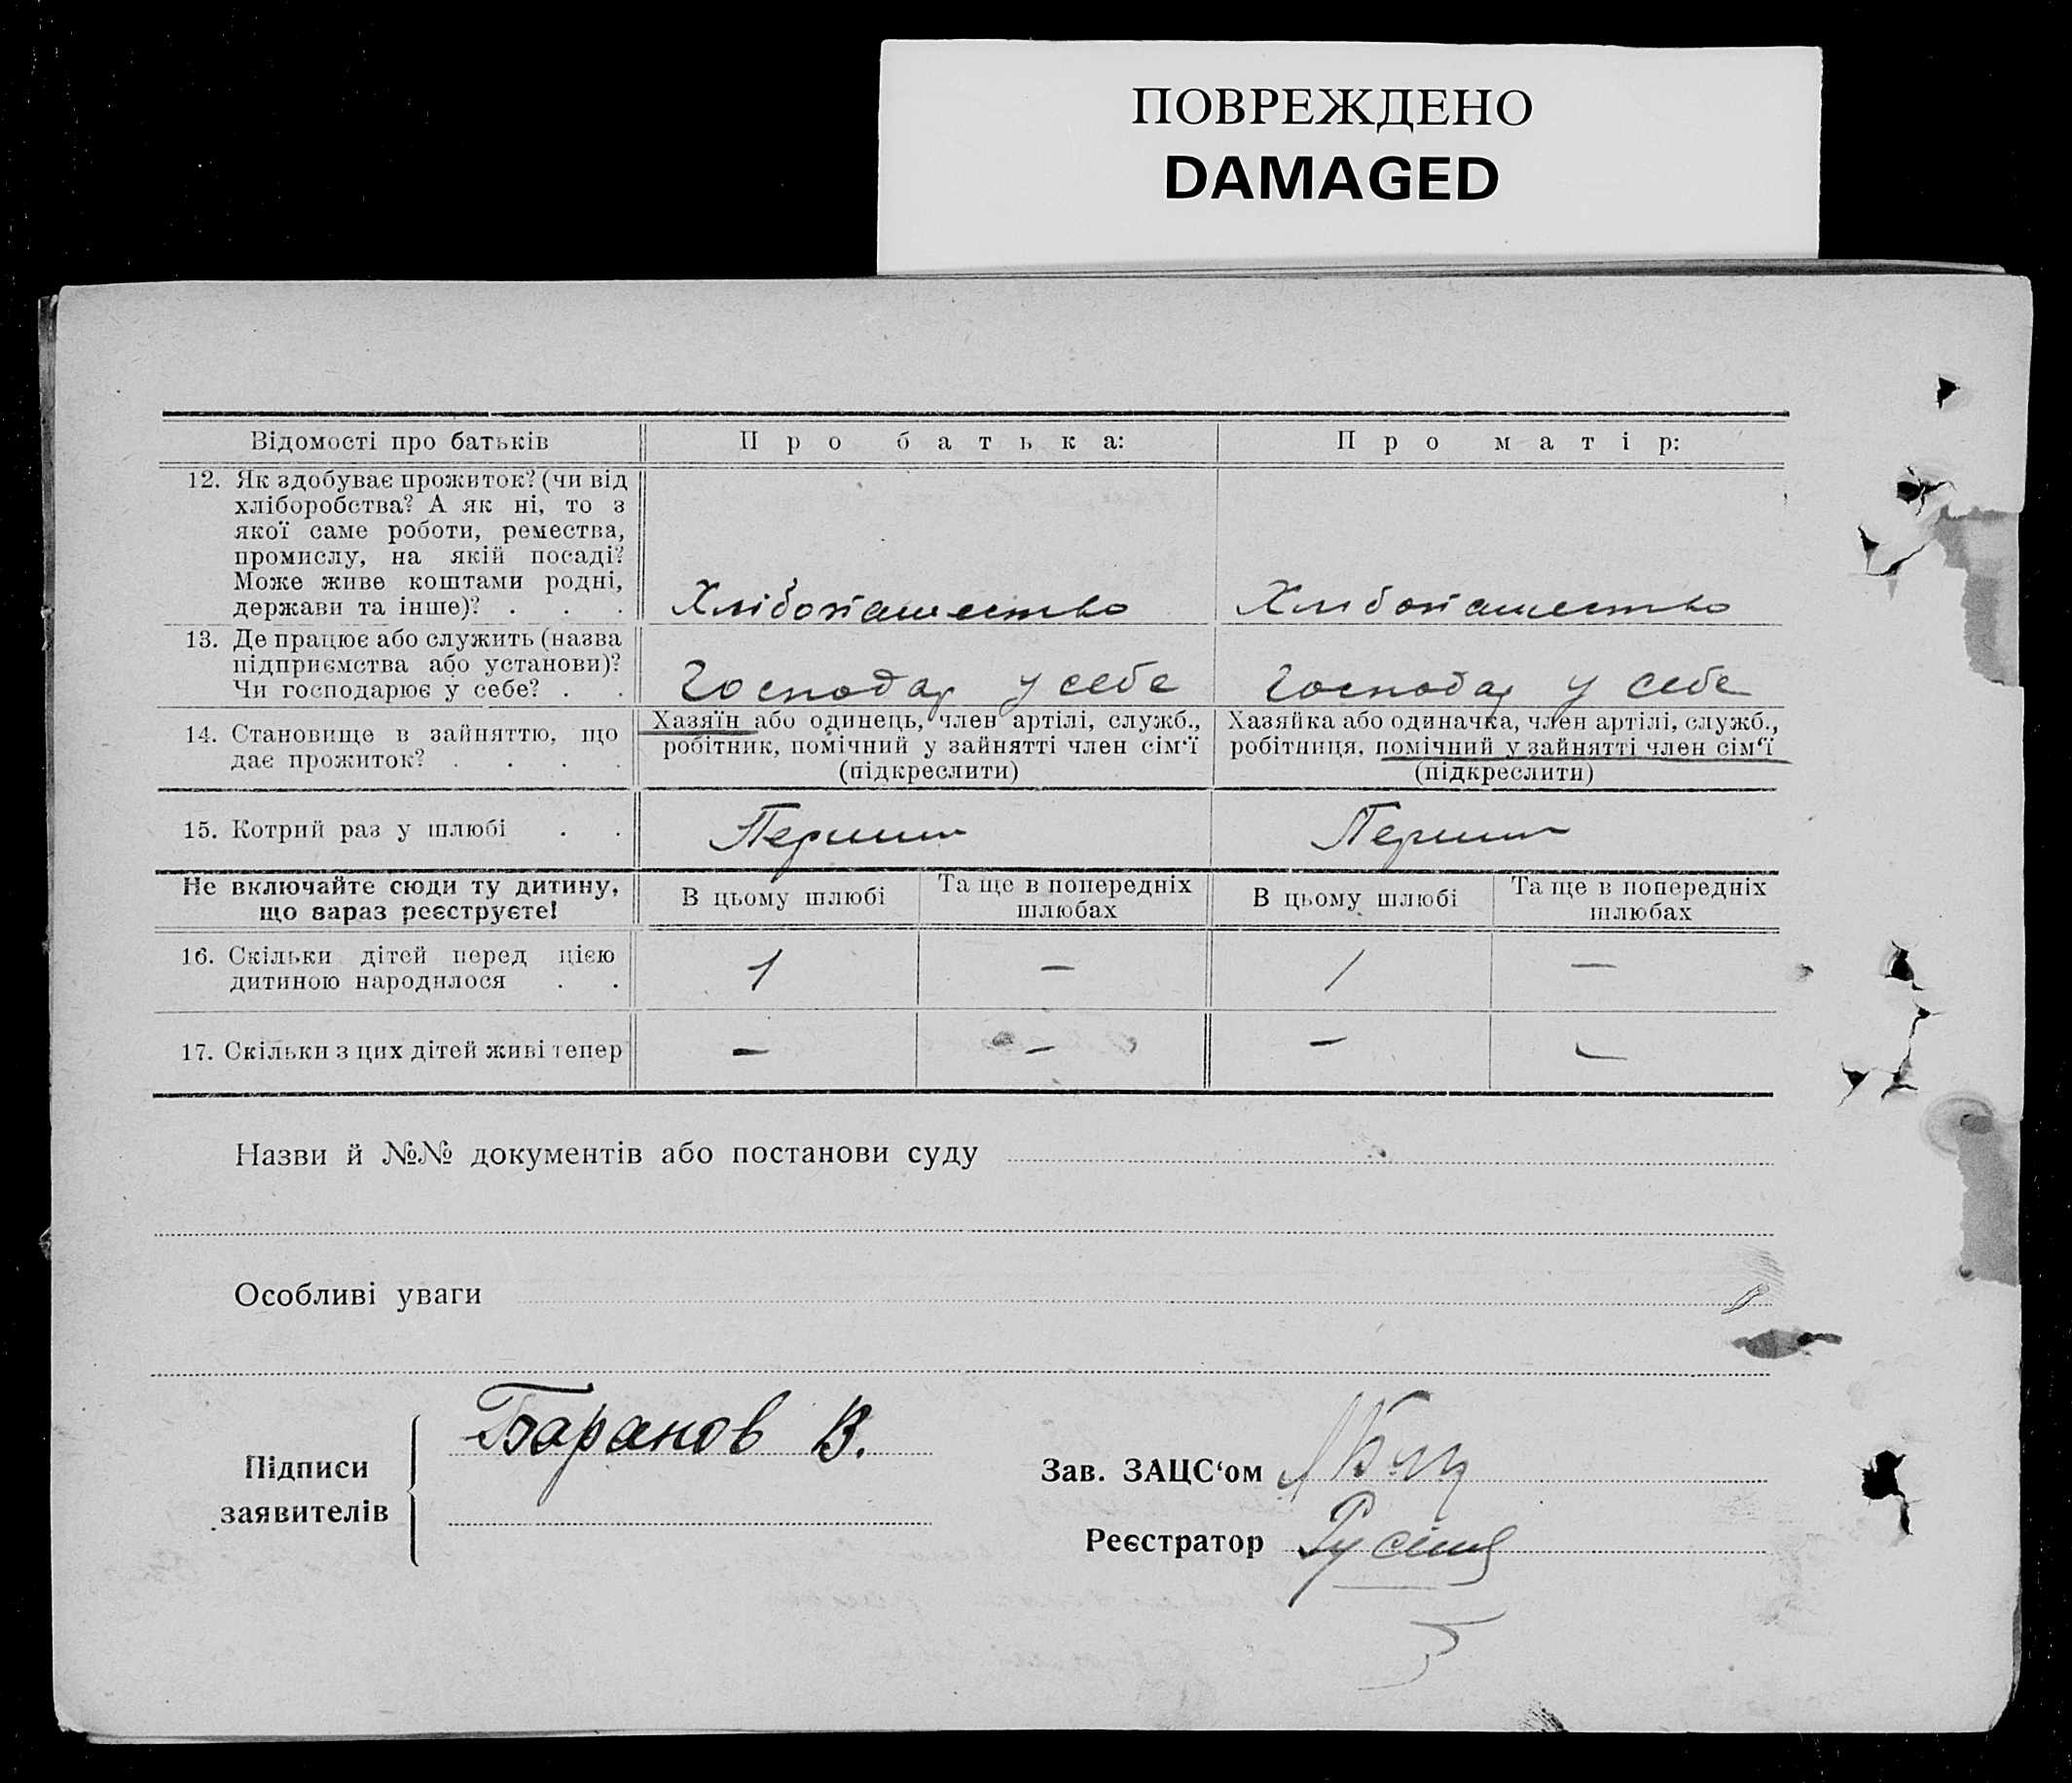 ПОВРЕЖДЕНО
DAMAGED
Відомості про батьків
Про батька:
Про матір:
12. Як здобуває прожиток? (чи від
хліборобства? А як ні, то з
якої саме роботи, ремества,
промислу, на якій посаді?
Може живе коштами родні,
держави та інше)? . . .
Хлібопашество
Хлібопашество
13. Де працює або служить (назва
підприємства або установи)?
Чи господарює у себе? . .
Господар у себе
Господар у себе
14. Становище в зайняттю, що
дає прожиток? . . . .
Хазяїн або одинець, член артілі, служб.,
робітник, помічний у зайнятті член сім‘ї
(підкреслити)
Хазяйка або одиначка, член артілі, служб.,
робітниця, помічний у зайнятті член сім‘ї
(підкреслити)
15. Котрий раз у шлюбі . .
Перший
Перший
Не включайте сюди ту дитину,
що зараз реєструєте!
В цьому шлюбі
Та ще в попередніх
шлюбах
В цьому шлюбі
Та ще в попередніх
шлюбах
16. Скільки дітей перед цією
дитиною народилося . .
1
—
1
—
17. Скільки з цих дітей живі тепер
—
—
—
—
Назви й №№ документів або постанови суду
Особливі уваги
Підписи
заявителів
Баранов В.
Зав. ЗАЦС‘ом
Реєстратор